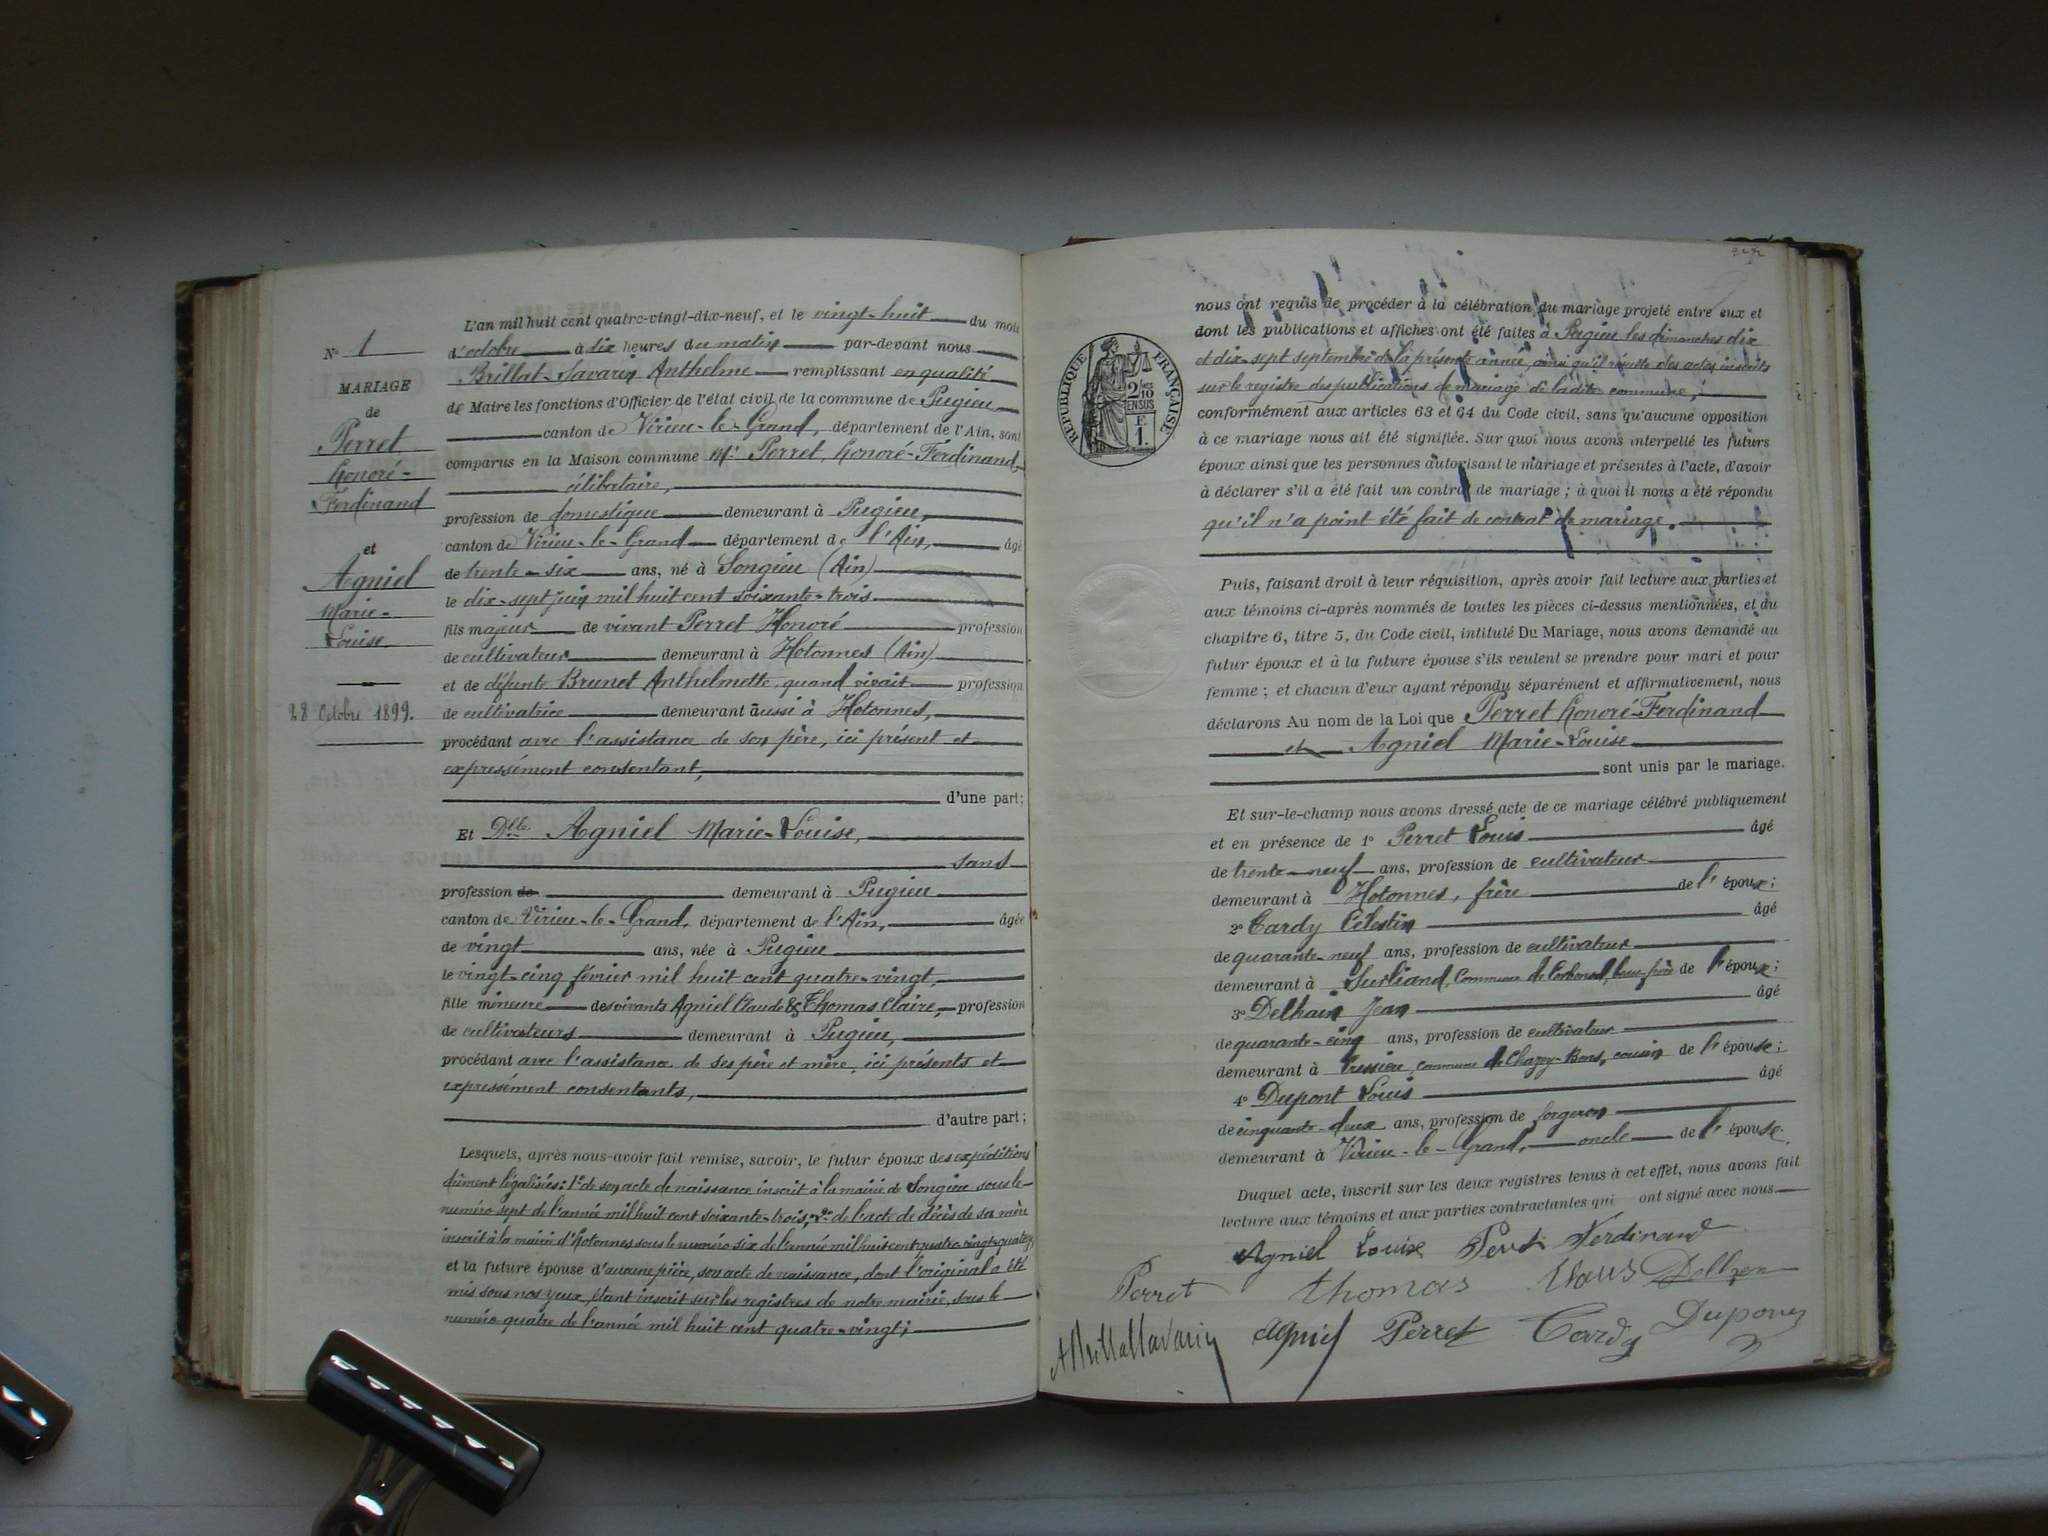 N° 1
MARIAGE
de
Perret
Honoré-
Ferdinand
et
Agniel
Marie-
Louise
28 Octobre 1899.
L'an mil huit cent quatre-vingt-dix-neuf, et le vingt-huit du mois
d'octobre à dix heures du matin par-devant nous
Brillat-Savarin Anthelme remplissant en qualité
de Maire les fonctions d'Officier de l'état civil de la commune de Pugieu
canton de Virieu-le-Grand, département de l'Ain, sont
comparus en la Maison commune Mr Perret, Honoré-Ferdinand,
célibataire,
profession de domestique demeurant à Pugieu,
canton de Virieu-le-Grand département de l'Ain, âgé
de trente-six ans, né à Songieu (Ain)
le dix-sept juin mil huit cent soixante-trois
fils majeur de vivant Perret Honoré profession
de cultivateur demeurant à Hotonnes (Ain)
et de défunte Brunet Anthelmette, quand vivait profession
de cultivatrice demeurant aussi à Hotonnes,
procédant avec l'assistance de son père, ici présent et
expressément consentant,
d'une part;
Et Dlle Agniel Marie-Louise,
sans
profession de demeurant à Pugieu
canton de Virieu-le-Grand, département de l'Ain, âgée
de vingt ans, née à Pugieu
le vingt-cinq février mil huit cent quatre-vingt,
fille mineure des vivants Agniel Claude & Thomas Claire, profession
de cultivateurs demeurant à Pugieu,
procédant avec l'assistance de ses père et mère, ici présents et
expressément consentants,
d'autre part;
Lesquels, après nous-avoir fait remise, savoir, le futur époux des expéditions
dûment légalisées: 1° de son acte de naissance inscrit à la mairie de Songieu sous le
numéro sept de l'année mil huit cent soixante-trois; 2° de l'acte de décès de sa mère
inscrit à la mairie d'Hotonnes sous le numéro six de l'année mil huit cent quatre-vingt-quatorze,
et la future épouse d'aucune pièce, son acte de naissance, dont l'original a été
mis sous nos yeux, étant inscrit sur les registres de notre mairie, sous le
numéro quatre de l'année mil huit cent quatre-vingt;
RÉPUBLIQUE FRANÇAISE
2/10
EN SUS
E
1.
nous ont requis de procéder à la célébration du mariage projeté entre eux et
dont les publications et affiches ont été faites à Pugieu les dimanches dix
et dix-sept septembre de la présente année, ainsi qu'il résulte des actes inscrits
sur le registre des publications de mariage de ladite commune;
conformément aux articles 63 et 64 du Code civil, sans qu'aucune opposition
à ce mariage nous ait été signifiée. Sur quoi nous avons interpellé les futurs
époux ainsi que les personnes autorisant le mariage et présentes à l'acte, d'avoir
à déclarer s'il a été fait un contrat de mariage; à quoi il nous a été répondu
qu'il n'a point été fait de contrat de mariage.
Puis, faisant droit à leur réquisition, après avoir fait lecture aux parties et
aux témoins ci-après nommés de toutes les pièces ci-dessus mentionnées, et du
chapitre 6, titre 5, du Code civil, intitulé Du Mariage, nous avons demandé au
futur époux et à la future épouse s'ils veulent se prendre pour mari et pour
femme; et chacun d'eux ayant répondu séparément et affirmativement, nous
déclarons Au nom de la Loi que Perret Honoré-Ferdinand
et Agniel Marie-Louise
sont unis par le mariage.
Et sur-le-champ nous avons dressé acte de ce mariage célébré publiquement
et en présence de 1° Perret Louis âgé
de trente-neuf ans, profession de cultivateur
demeurant à Hotonnes, frère de l'époux;
2° Cardy Célestin âgé
de quarante-neuf ans, profession de cultivateur
demeurant à commune de beau-frère de l'époux;
3° Delhain Jean âgé
de quarante-cinq ans, profession de cultivateur
demeurant à Cressieu, commune de Chazey-Bons, cousin de l'épouse;
4° Dupont Louis âgé
de cinquante-deux ans, profession de forgeron
demeurant à Virieu-le-Grand, oncle de l'épouse.
Duquel acte, inscrit sur les deux registres tenus à cet effet, nous avons fait
lecture aux témoins et aux parties contractantes qui ont signé avec nous
Agniel Louise Perret Ferdinand
Perret Thomas
ABrillatSavarin Agniel Perret Cardy Dupont